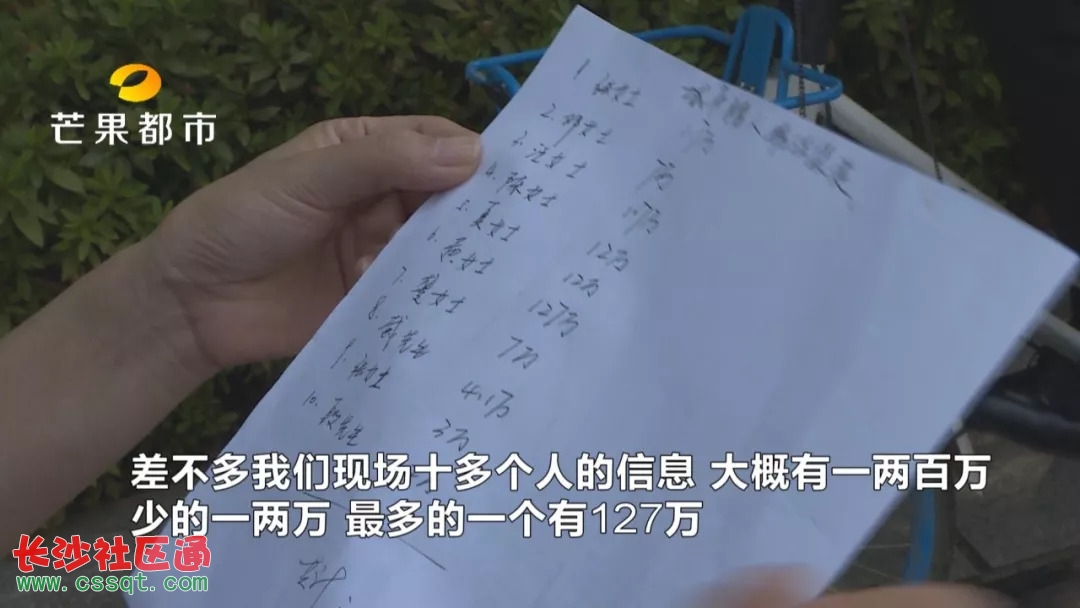 芒果都市
1. 张女士 万
2. 邹女士 万
3. 沈女士 万
4. 陈女士 12万
5. 夏女士 12万
6. 颜女士 127万
7. 楚女士 7万
8. 戴先生 4.1万
9. 女士 3万
10. 段先生
差不多我们现场十多个人的信息 大概有一两百万
少的一两万 最多的一个有127万
长沙社区通
www.cssqt.com